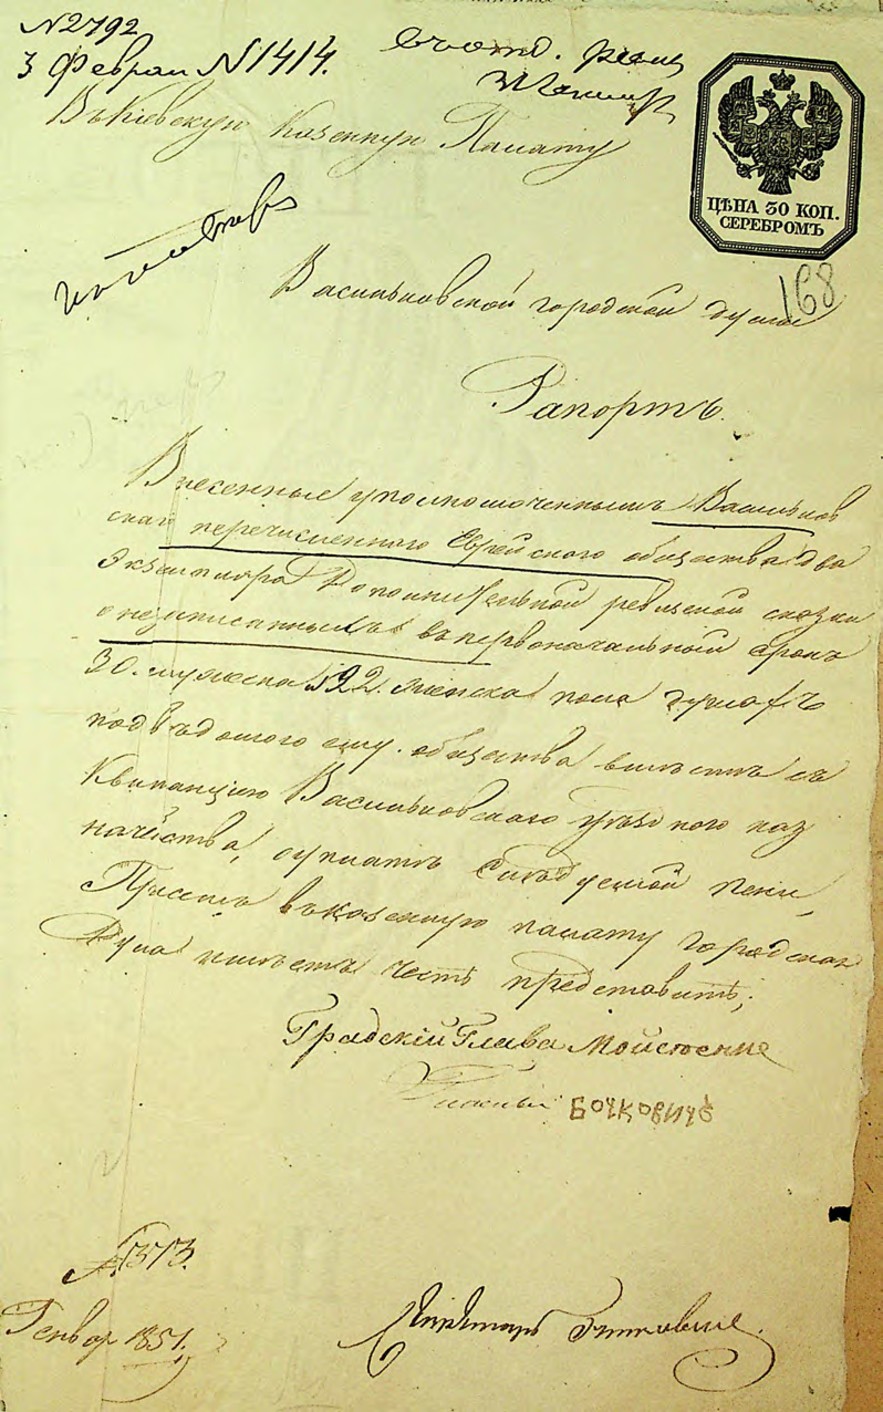 N 2792
3 Февраля N 1414.
Въ Кіевскую Казенную Палату
ЦѢНА 30 КОП.
СЕРЕБРОМЪ
168
Васильковской городской думы
Рапортъ.
Внесенные уполномоченнымъ Васильков
скаго перечисленнаго Еврейского общества два
Экземпляра Дополнительной ревизской сказки
о незаписанныхъ въ первоначальный срокъ
30. мужеска и 22. женска пола душахъ
подвѣдомого ему общества вместѣ съ
Квитанціею Васильковского уѣздного каз
начейства, оуплатѣ Слѣдуемой пени,
Присемъ въ казенную палату городская
Дума имѣетъ честь представить;
Градскій Глава Мойсеенко
Гласный Бочковичъ
N 1373.
Генвар 1851.